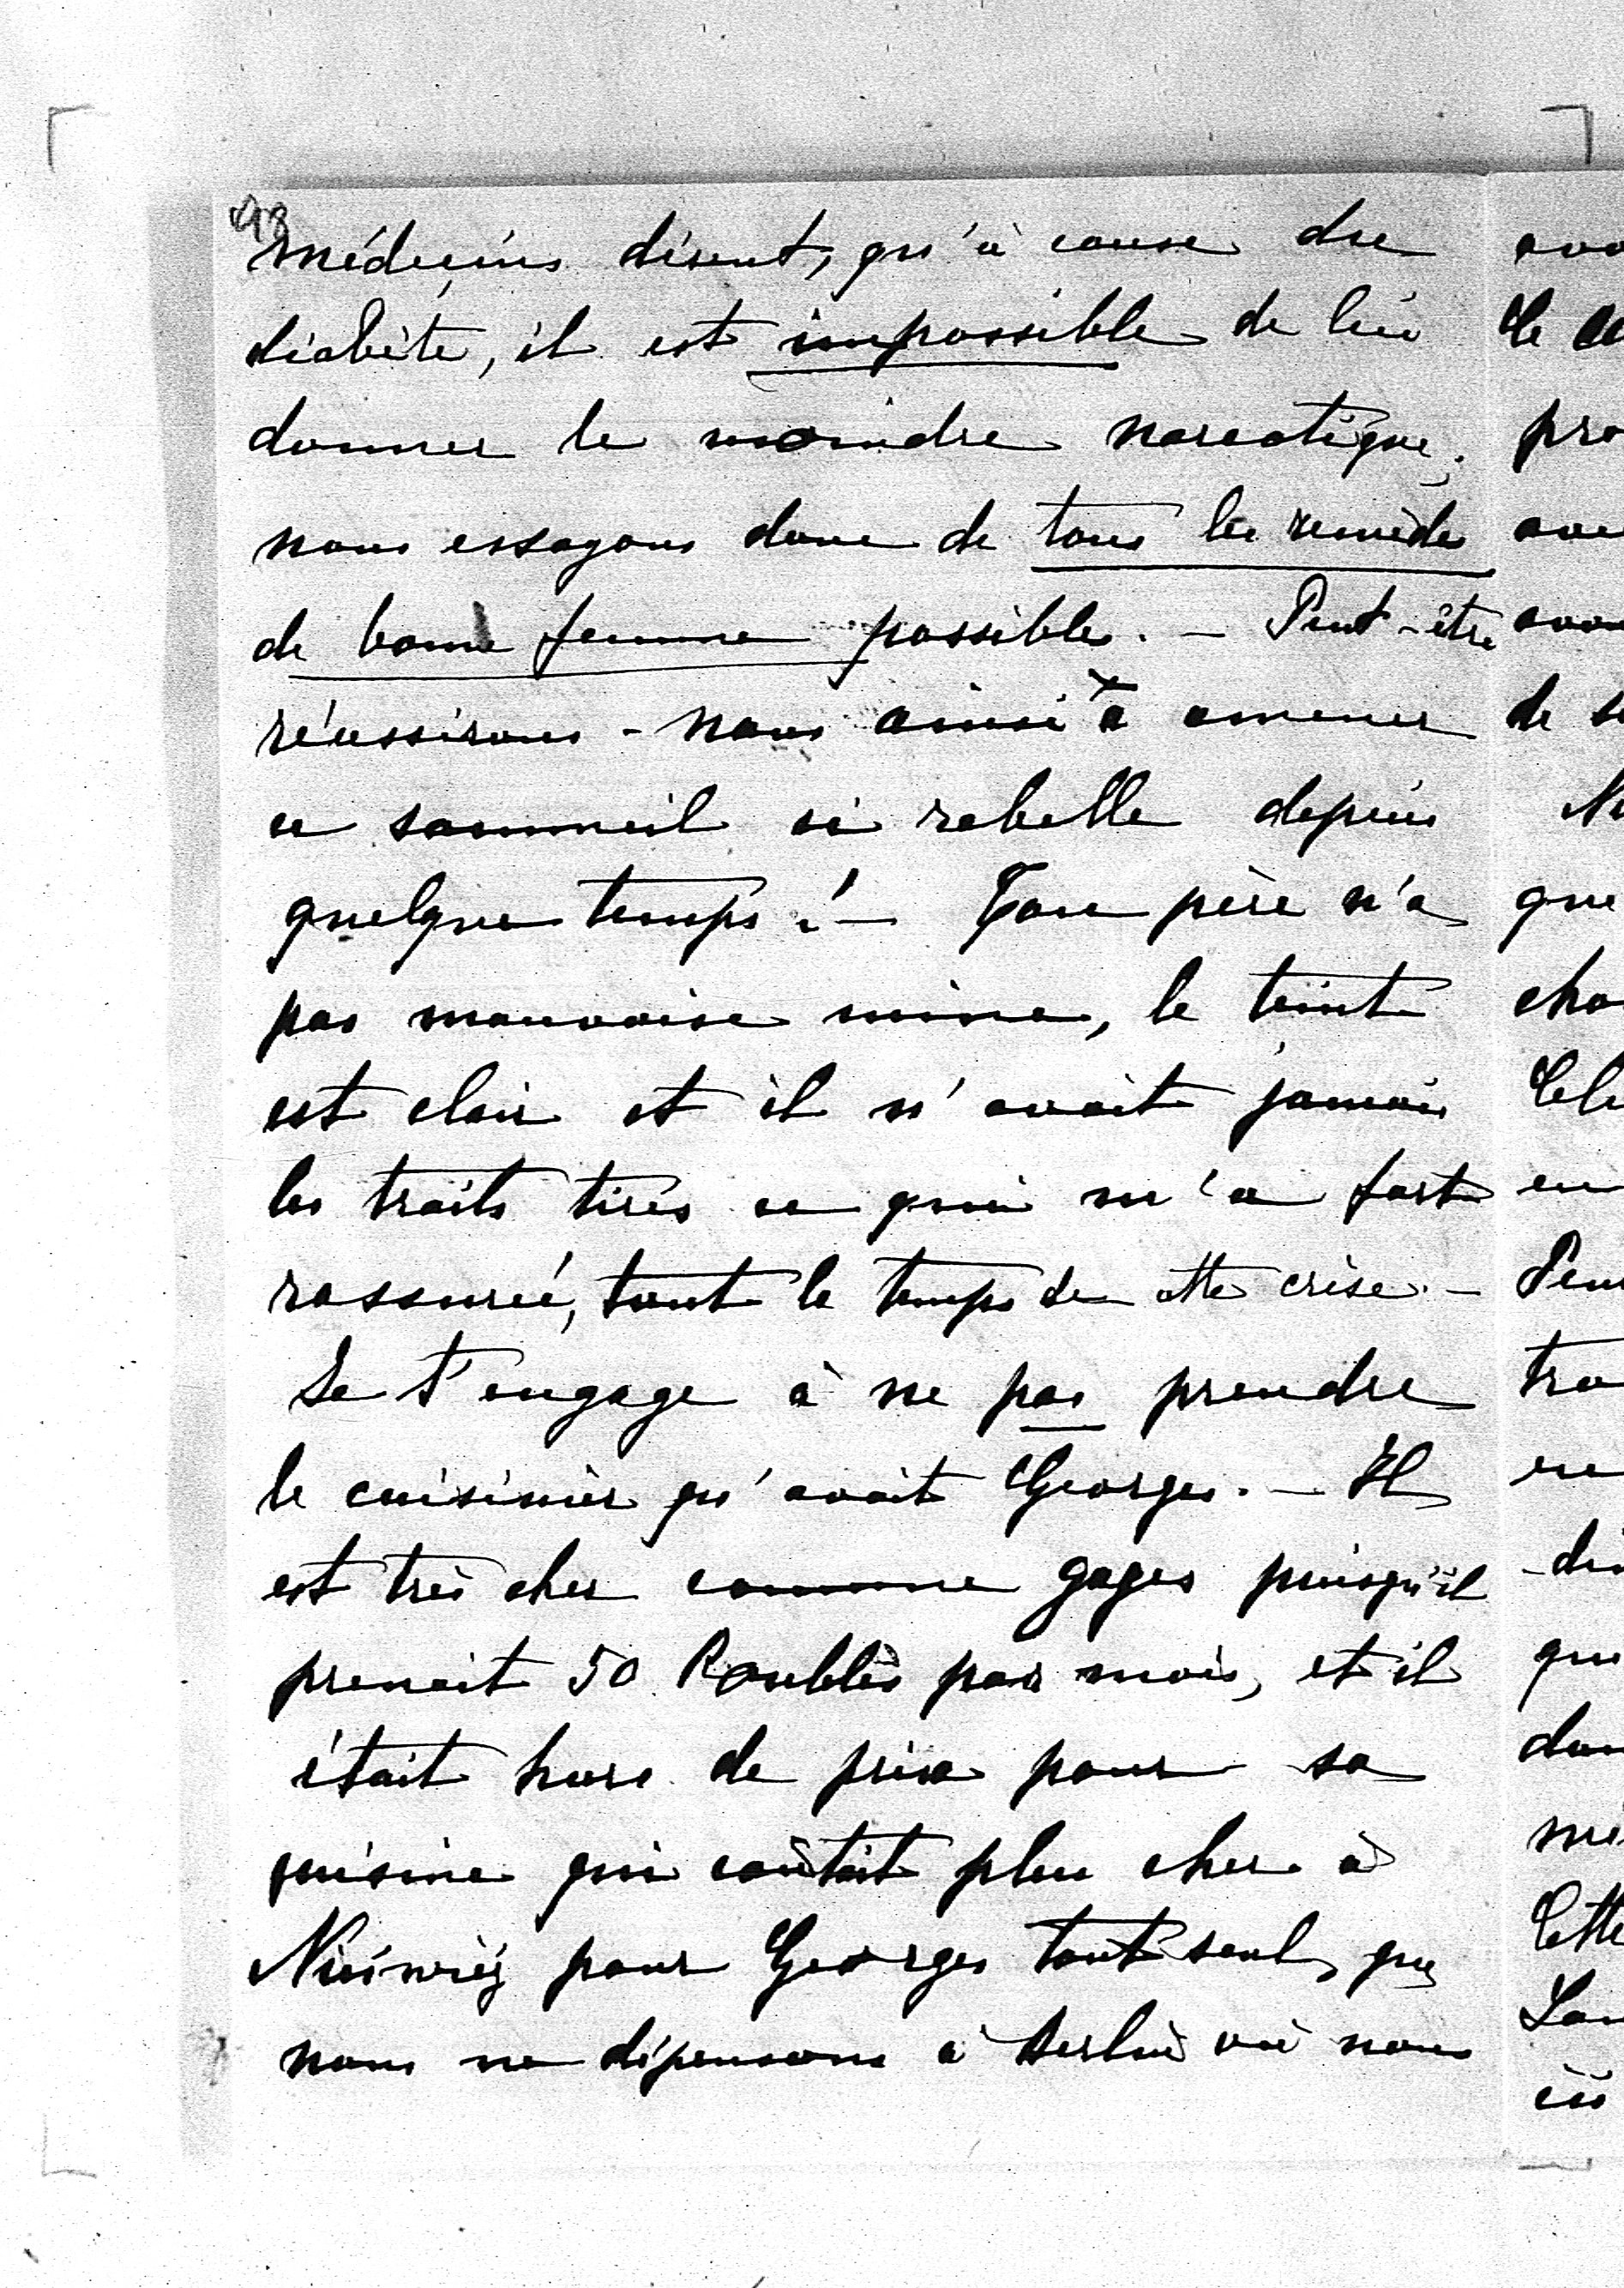 98
médecins disent, qu'à cause du
diabète, il est impossible de lui
donner le moindre narcotique;
nous essayons donc de tous les remèdes
de bonne femme possibles. – Peut-être
réussirons-nous ainsi à amener
ce sommeil si rebelle depuis
quelque temps! – Ton père n'a
pas mauvaise mine, le teint
est clair et il n'avait jamais
les traits tirés ce qui m'a fort
rassurée, tout le temps de cette crise. –
Je t'engage à ne pas prendre
le cuisinier qu'avait Georges. – Il
est très cher comme gages puisqu'il
prenait 50 Roubles par mois, et il
était hors de prix pour sa
cuisine qui coûtait plus cher à
pour Georges tout seul, que
nous ne dépensons à Berlin où nous